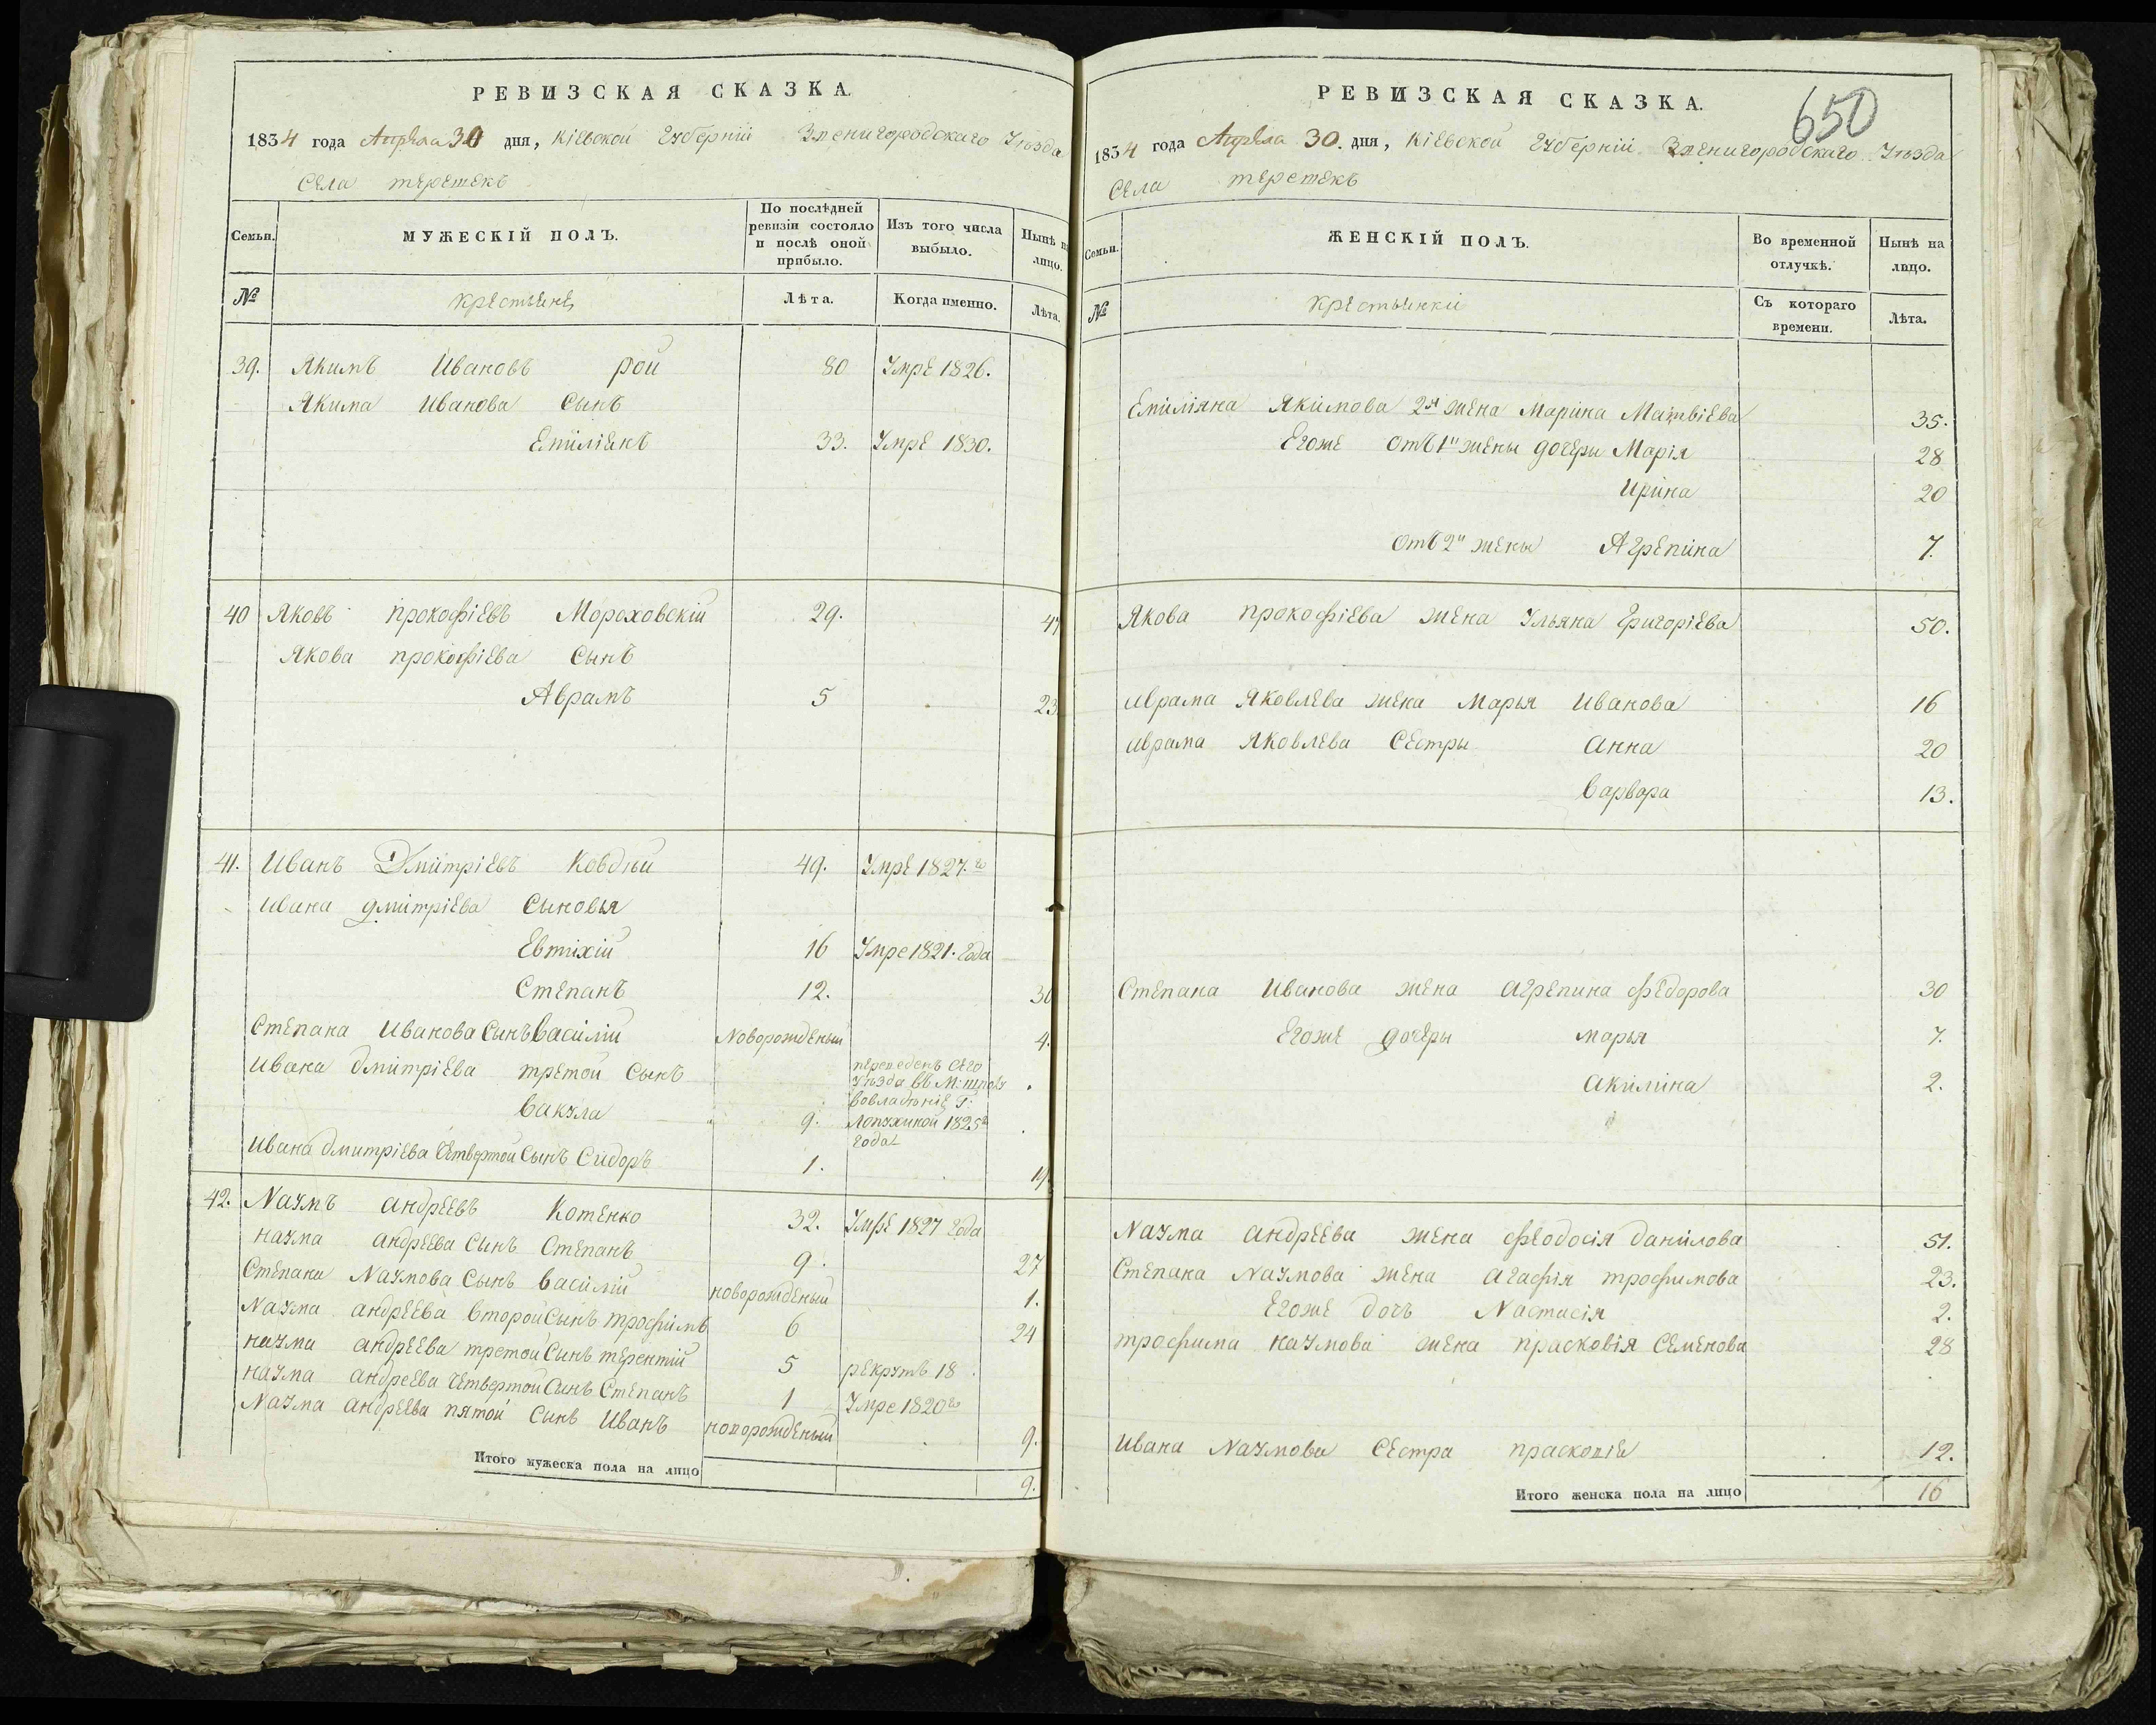 РЕВИЗСКАЯ СКАЗКА.
1834 года Апреля 30 дня, Кіевской Губерніи Звенигородскаго Уѣзда
Села терешекъ
Семьи.
МУЖЕСКІЙ ПОЛЪ.
По послѣдней ревизіи состояло и послѣ оной прибыло.
Изъ того числа выбыло.
Нынѣ на лицо.
№
крестьяне
Лѣта.
Когда именно.
Лѣта.
39. Якимъ Ивановъ рой 80 Умре 1826.
Якима Иванова Сынъ
Емиліянъ 33. Умре 1830.
40 Яковъ прокофіевъ Мороховскій 29. 47
Якова прокофіева Сынъ
Аврамъ 5 23
41. Иванъ Дмитріевъ Ковдій 49. Умре 1827.го
Ивана дмитріева Сыновья
Евтихій 16 Умре 1821. Года
Степанъ 12. 30
Степана Иванова Сынъ Василій Новорожденый 4.
Ивана дмитріева третой Сынъ
Вакула 9. переведенъ Сего Уѣзда въ М: шполу вовладѣніе Г: Лопухиной 1825го Года
Ивана дмитріева Четвертой Сынъ Сидоръ 1. 19
42. Наумъ андреевъ Котенко 32. Умре 1827 Года
наума андреева Сынъ Степанъ 9. 27
Степана Наумова Сынъ Василій новорожденый 1.
Наума андреева второй Сынъ трофимъ 6 24
наума андреева третой Сынъ терентій 5 рекрутъ 18
наума андреева Четвертой Сынъ Степанъ 1 Умре 1820го
Наума андреева пятой Сынъ Иванъ новорожденый 9.
Итого мужеска пола на лицо 9.
РЕВИЗСКАЯ СКАЗКА.
650
1834 года Апреля 30. дня, Кіевской Губерніи Звенигородскаго Уѣзда
Села терешекъ
Семьи.
ЖЕНСКІЙ ПОЛЪ.
Во временной отлучкѣ.
Нынѣ на лицо.
№
крестьянки
Съ котораго времени.
Лѣта.
Емиліяна Якимова 2я жена Марина Матвіева 35.
Егоже отъ 1й жены дочери Марія 28
Ирина 20
отъ 2й жены Агрепина 7.
Якова прокофіева жена Ульяна Григоріева 50.
аврама Яковлева жена Марья Иванова 16
аврама Яковлева Сестры анна 20
варвара 13.
Степана Иванова жена агрепина федорова 30
Егоже дочери марья 7.
акилина 2.
Наума андреева жена феодосія данилова 51.
Степана Наумова жена агафія трофимова 23.
Егоже дочъ Настасія 2.
трофима наумова жена прасковія Семенова 28
Ивана Наумова Сестра прасковія 12.
Итого женска пола на лицо 16